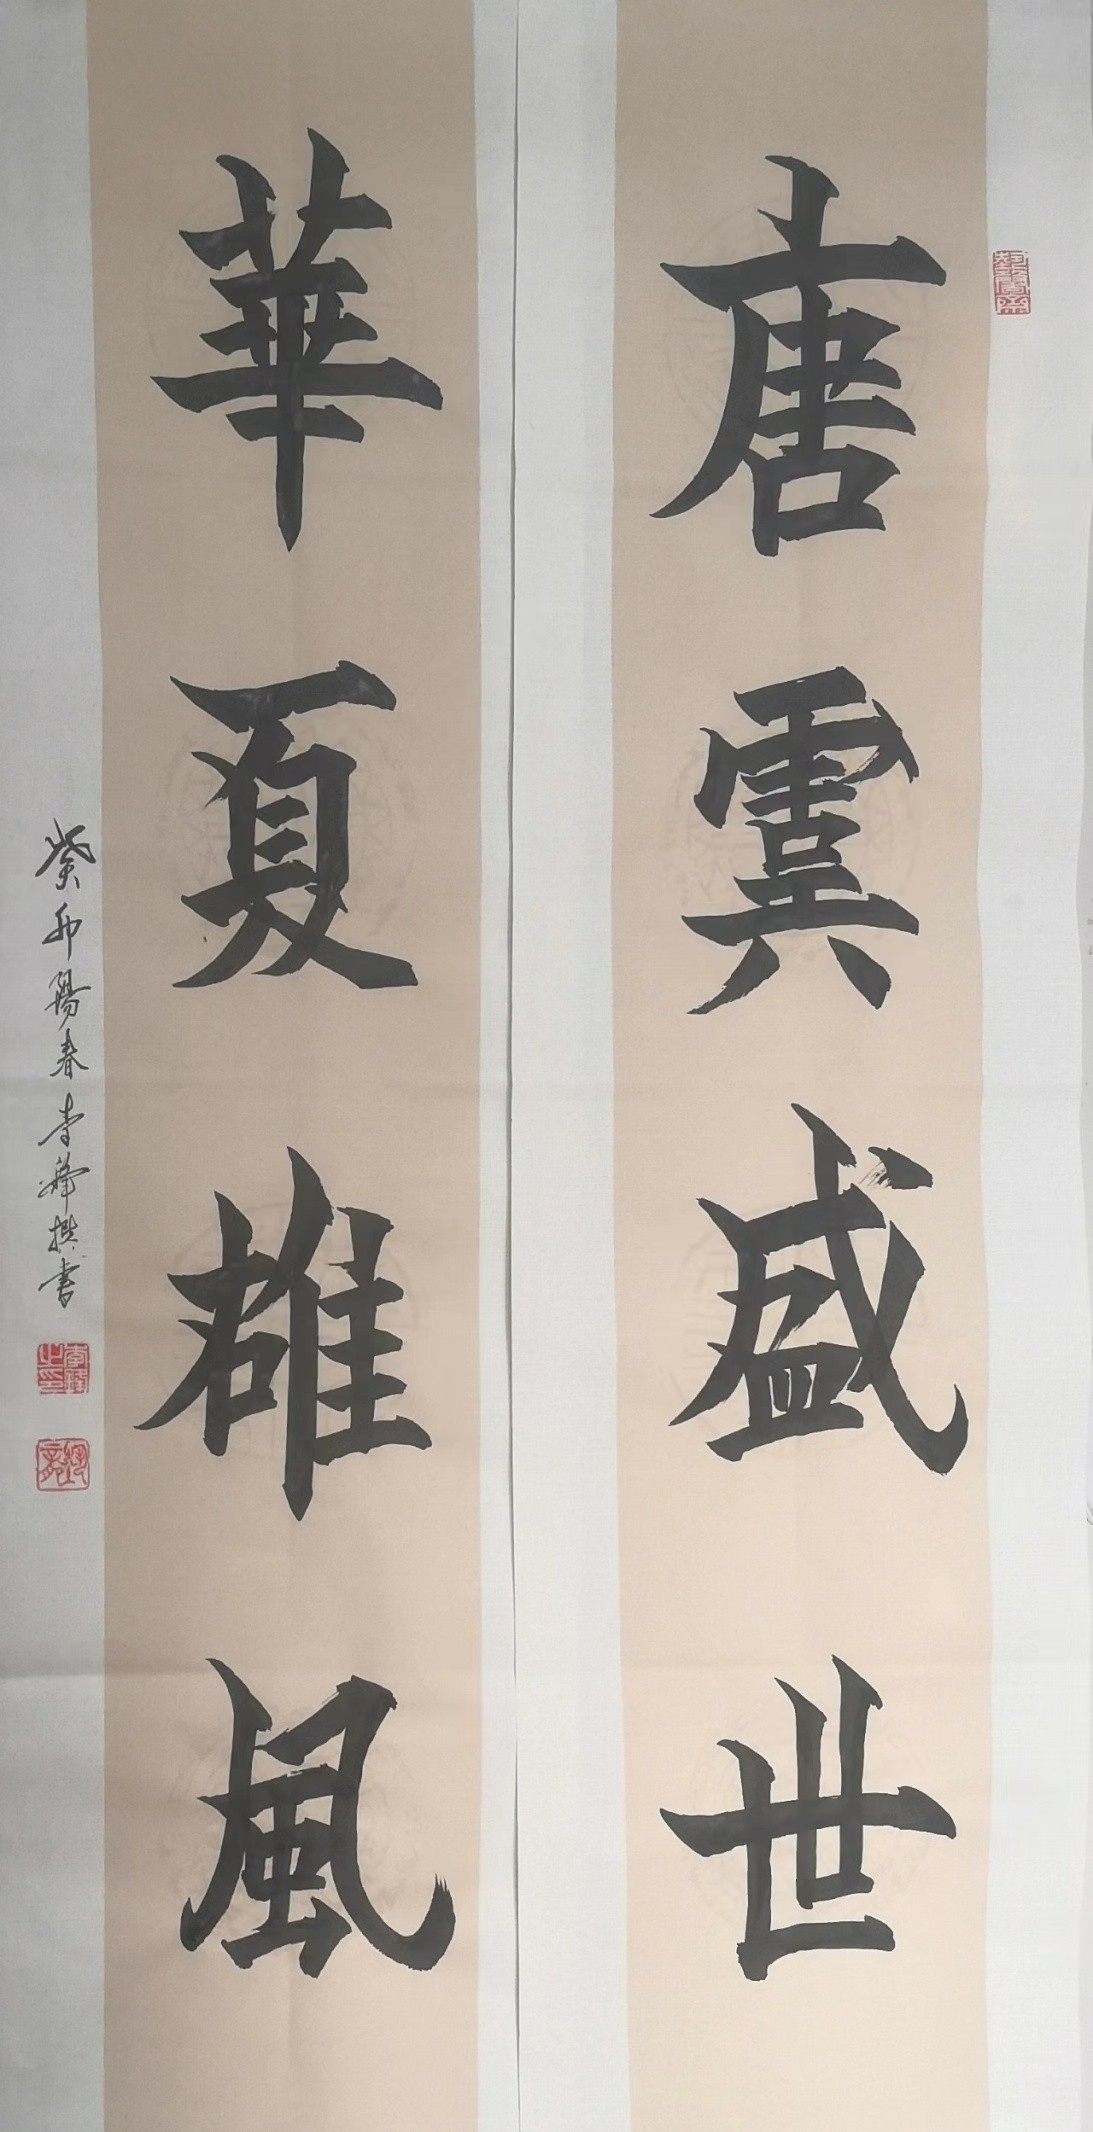 唐虞盛世
華夏雄風
癸卯陽春李撰書